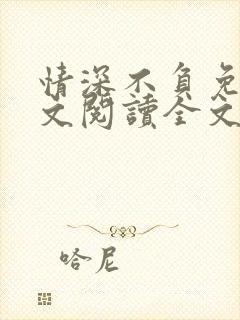 情深不負免
文閱讀全文
哈尼